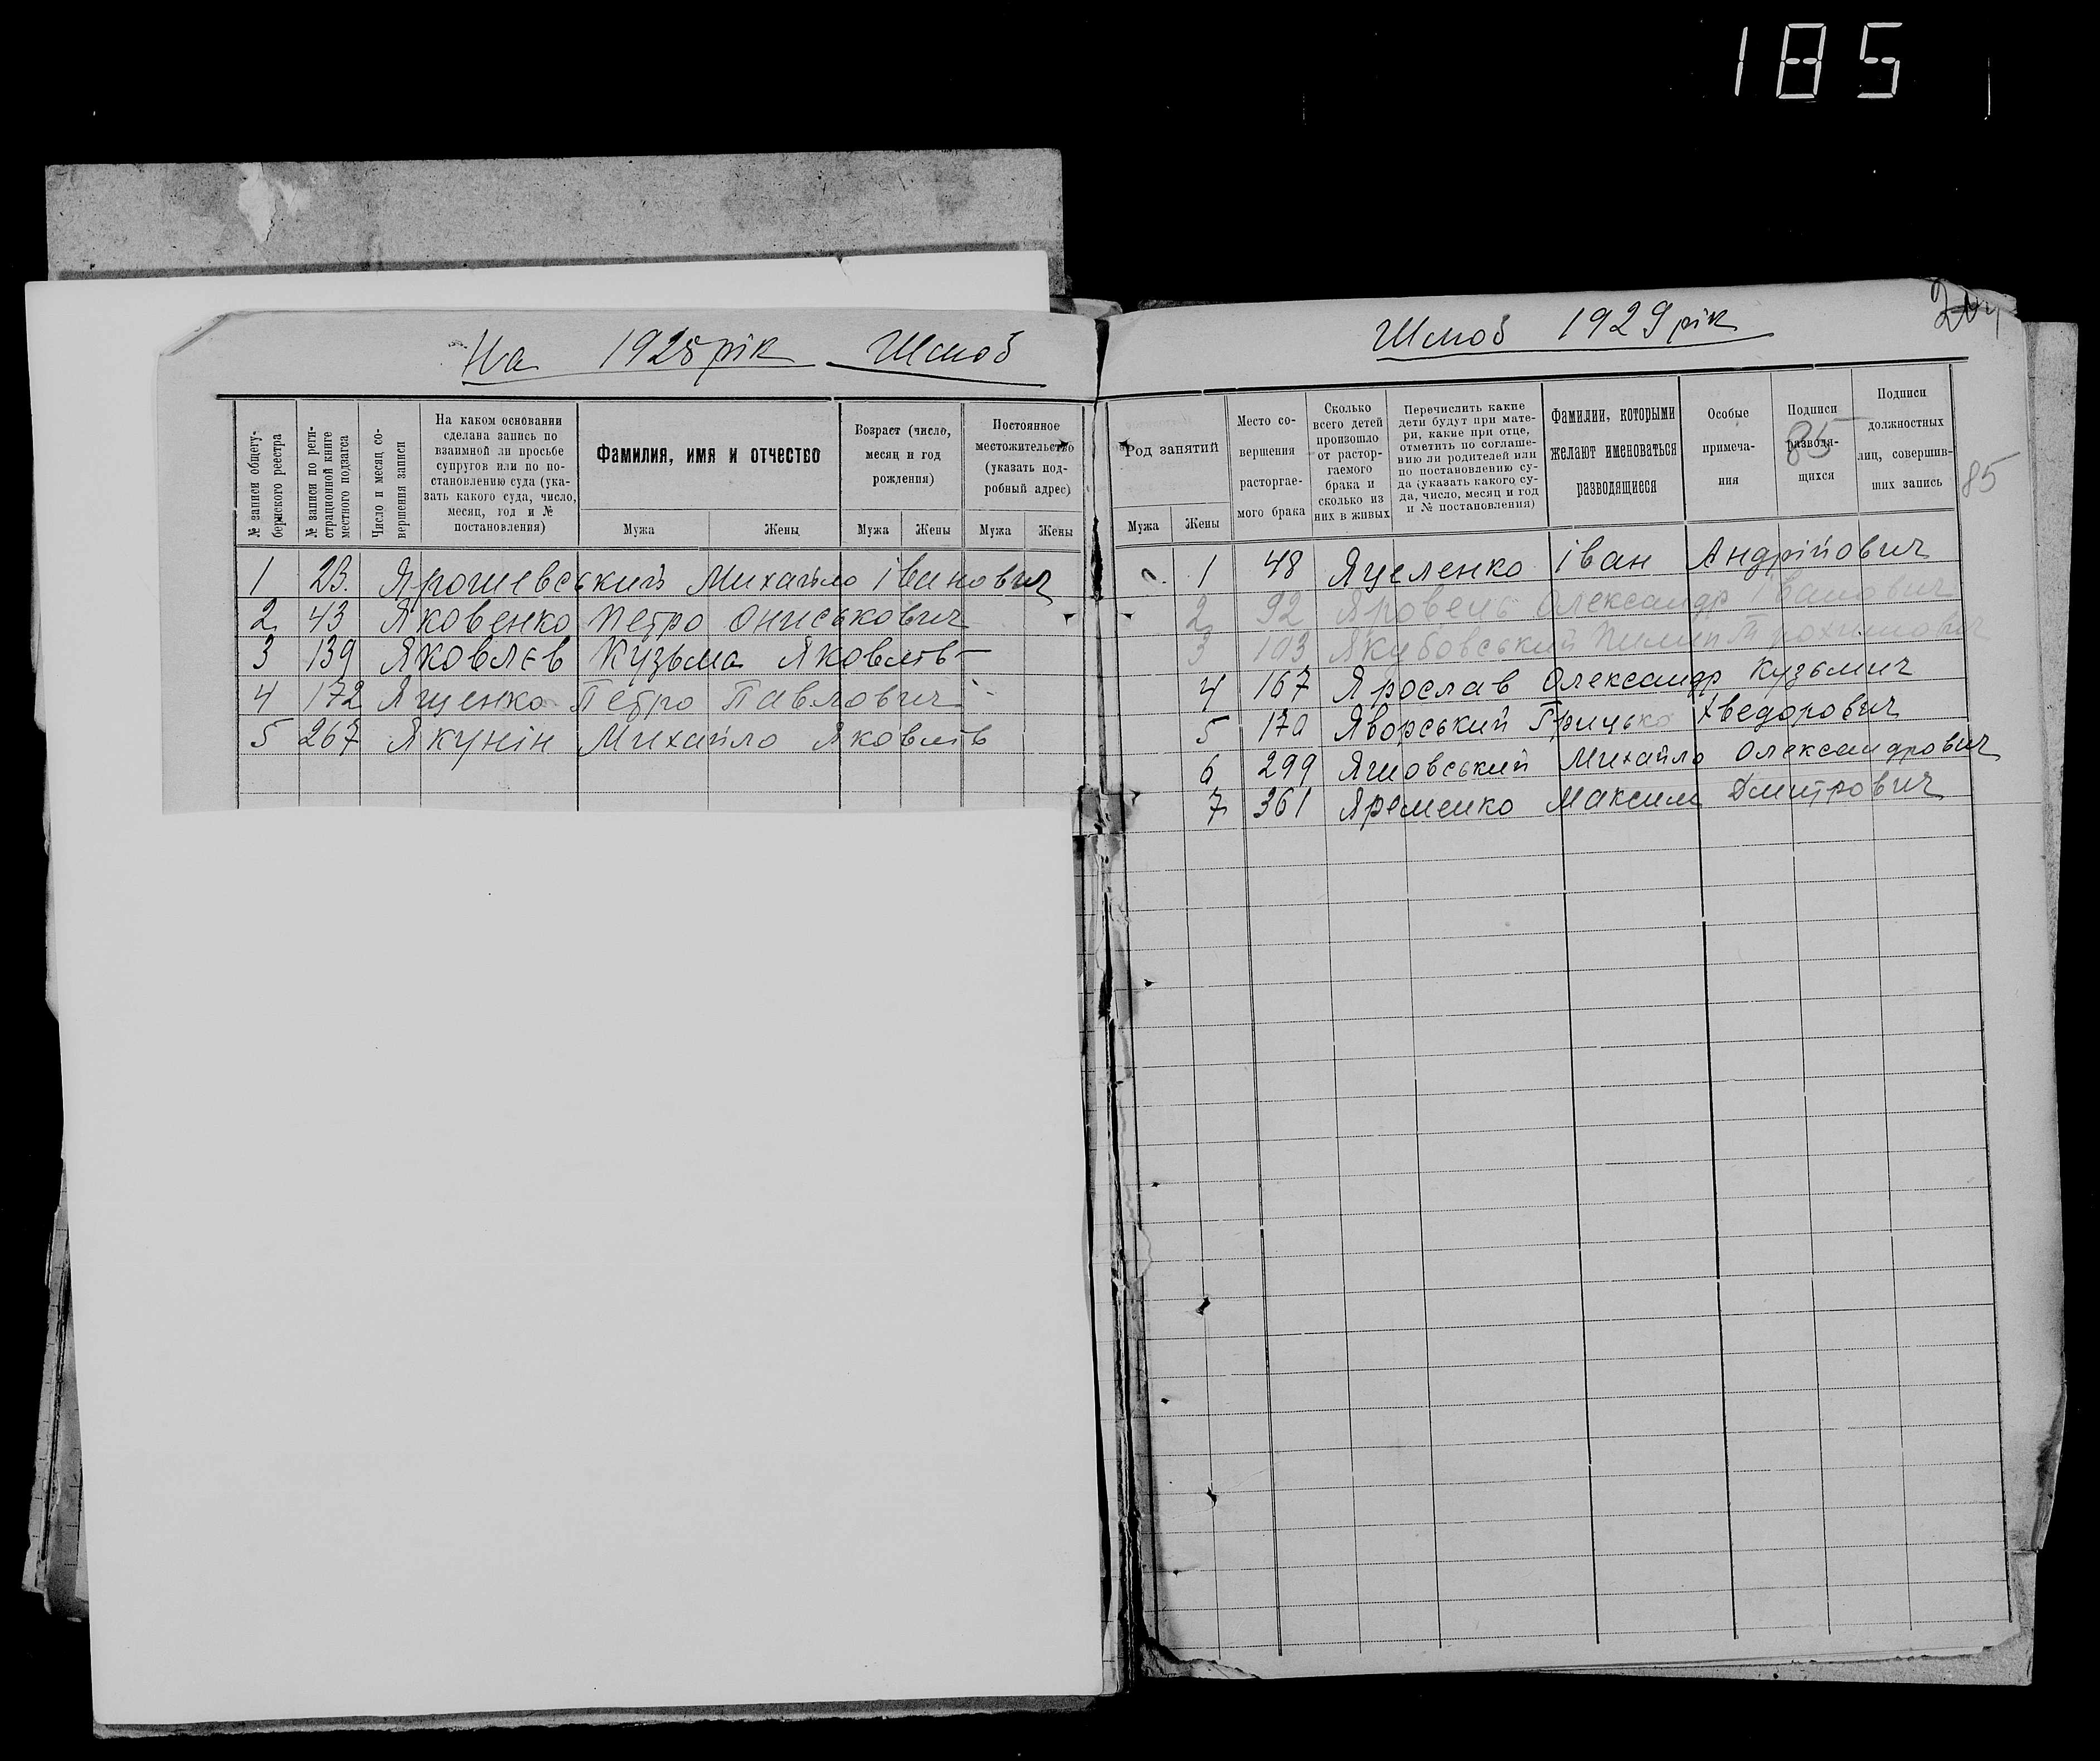 185
На 1928 рік Шлюб
№ записи общегу-
бернского реестра
№ записи по реги-
страционной книге
местного подзагса
Число и месяц со-
вершения записи
На каком основании
сделана запись по
взаимной ли просьбе
супругов или по по-
становлению суда (ука-
зать какого суда, число,
месяц, год и №
постановления)
Фамилия, имя и отчество
Мужа Жены
Возраст (число,
месяц и год
рождения)
Мужа Жены
Постоянное
местожительство
(указать под-
робный адрес)
Мужа Жены
1 23. Ярошевський Михайло Іванович
2 43 Яковенко ПетроОниськович
3 139 Яковлєв Кузьма Яковлів
4 172 Ященко Петро Павлович
5 267 Якунін Михайло Яковлів
Шлюб 1929 рік
Род занятий
Мужа Жены
Место со-
вершения
расторгае-
мого брака
Сколько
всего детей
произошло
от растор-
гаемого
брака и
сколько из
них в живых
Перечислить какие
дети будут при мате-
ри, какие при отце,
отметить по соглаше-
нию ли родителей или
по постановлению су-
да (указать какого су-
да, число, месяц и год
и № постановления)
Фамилии, которыми
желают именоваться
разводящиеся
Особые
примеча-
ния
Подписи
разводя-
щихся
85
Подписи
должностных
лиц, совершив-
ших запись
85
1 48 Яцеленко Іван Андрійович
2 92 Яровець Олександр Іванович
3 103 Якубовський Пилип Трохимович
4 167 Ярослав Олександр Кузьмич
5 170 Яворський Грицько Хведорович
6 299 Яшовський Михайло Олександрович
7 361 Яременко Максим Дмитрович